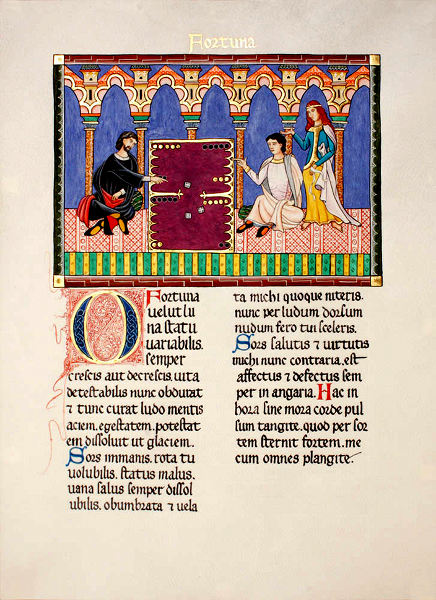 Fortuna
O Fortuna
uelut lu
na statu
uariabilis.
semper
crescis aut decrescis. uita
detestabilis nunc obdurat
& tunc curat ludo mentis
aciem. egestatem. potestat
em dissoluit ut glaciem.
Sors immanis. rota tu
uolubilis. status malus.
uana salus semper dissol
ubilis. obumbrata & uela
ta michi quoque niteris.
nunc per ludum dorsum
nudum fero tui sceleris.
Sors salutis & uirtutis
michi nunc contraria. est
affectus & defectus sem
per in angaria. Hac in
hora sine mora corde pul
sum tangite. quod per sor
tem sternit fortem. me
cum omnes plangite.